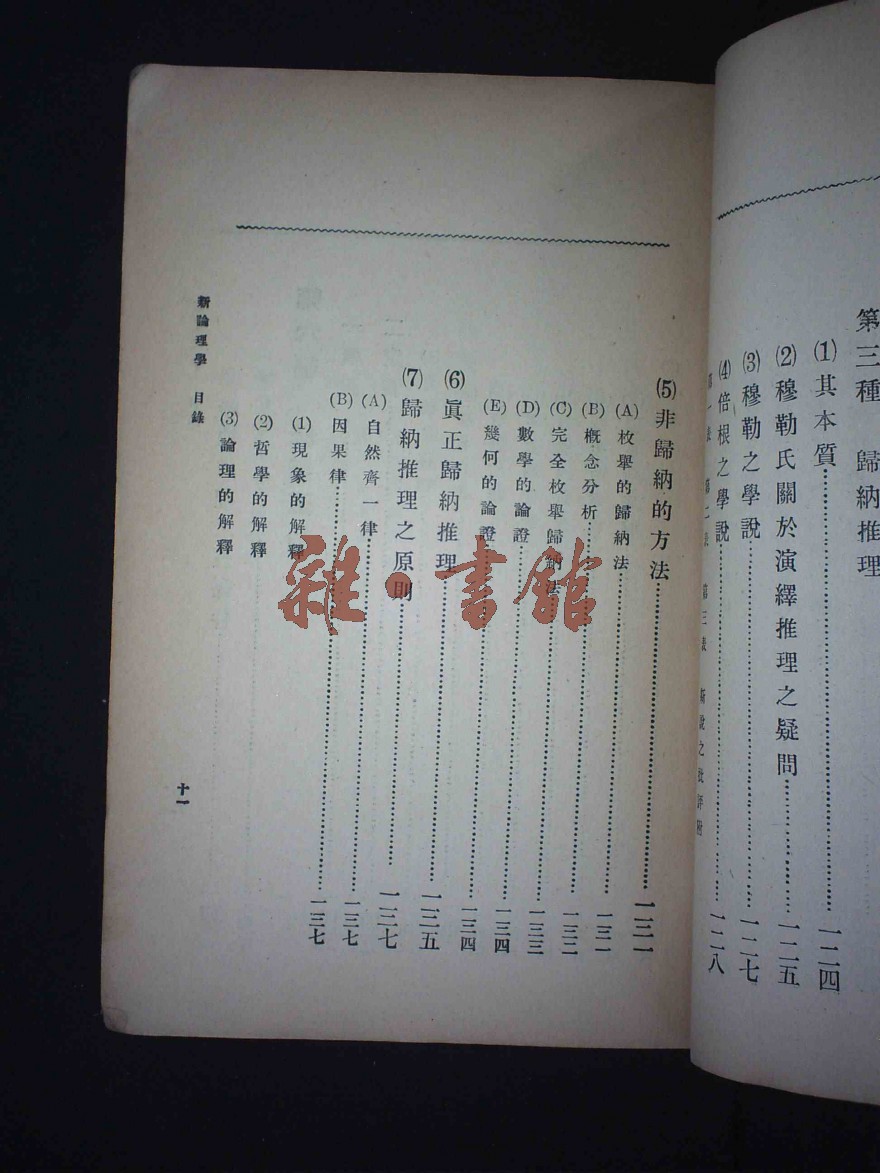 第三種　歸納推理
⑴其本質……一二四
⑵穆勒氏關於演繹推理之疑問……一二五
⑶穆勒之學說……一二七
⑷倍根之學說……一二八
第一表　第二表　第三表　新說之批評附
⑸非歸納的方法……一三一
(A)枚舉的歸納法……一三一
(B)概念分析……一三一
(C)完全枚舉歸納法……一三二
(D)數學的論證……一三三
(E)幾何的論證……一三四
⑹眞正歸納推理……一三五
⑺歸納推理之原則……一三七
(A)自然齊一律……一三七
(B)因果律……一三七
⑴現象的解釋
⑵哲學的解釋
⑶論理的解釋
新論理學　目錄
十一
雜·書館